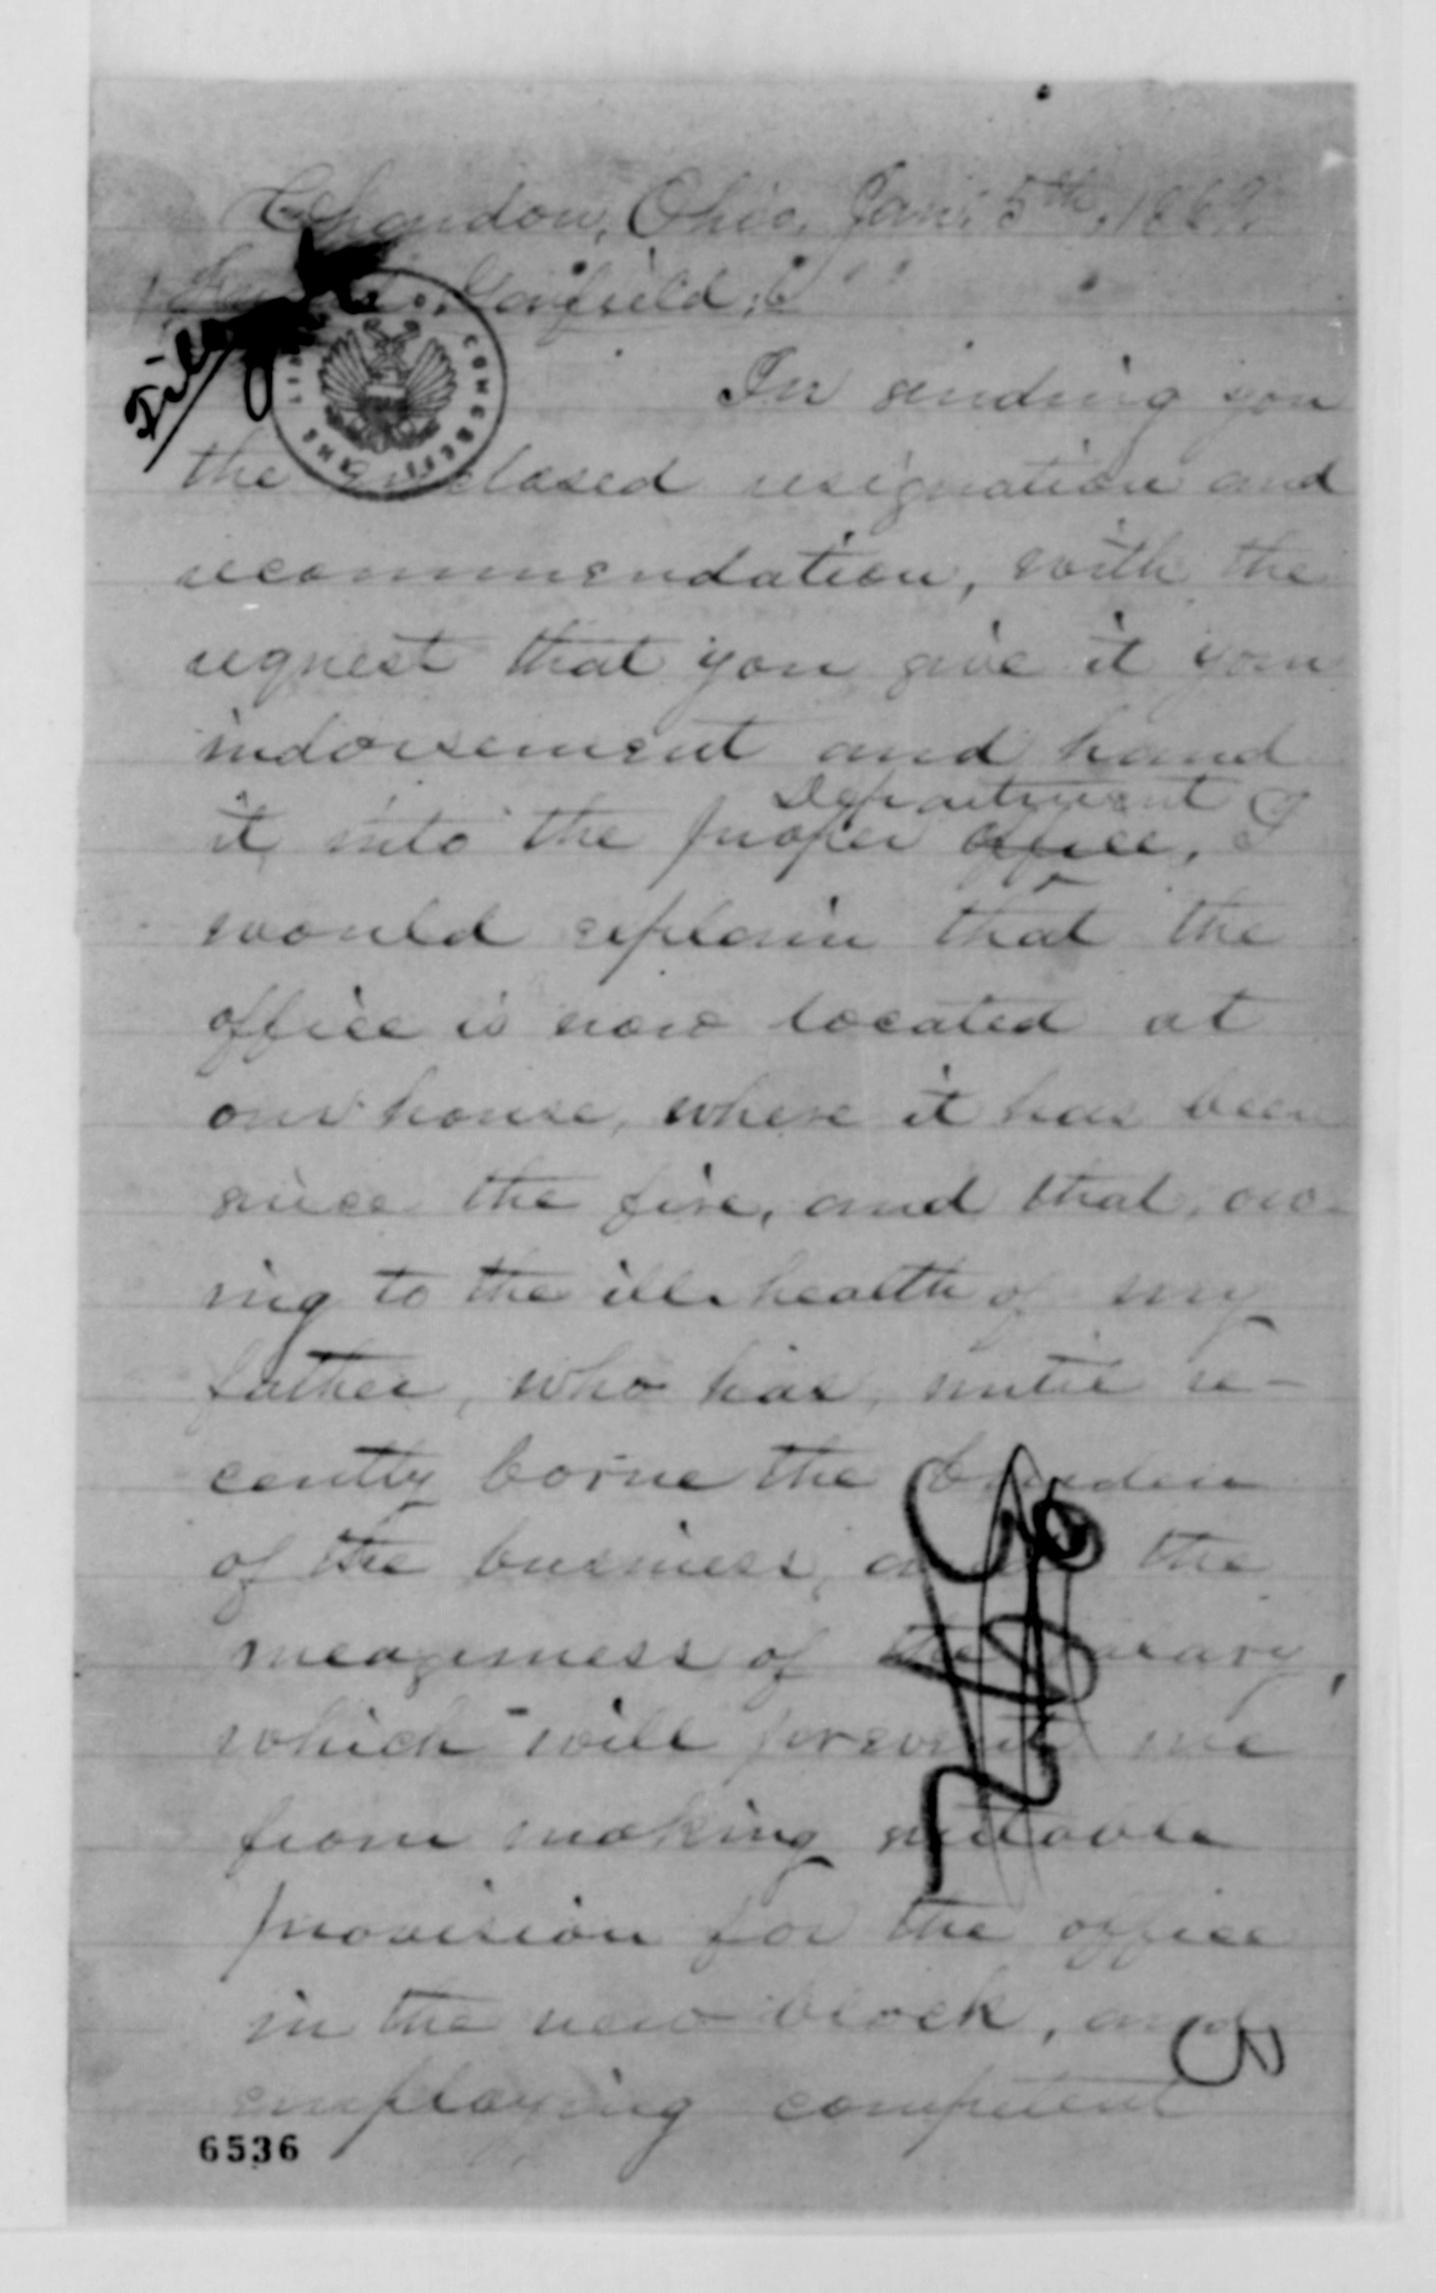 Chardon, Ohio, Jan. 5th, 1869.
Garfield;
File
THE LIBRARY CONGRESS
In sending you
the enclosed resignation and
recommendation, with the
request that you give it your
indorsement and hand
Department
it into the proper office, I
would explain that the
office is now located at
our house, where it has been
since the fire, and that, ow-
ing to the ill-health of my
father, who has, until re-
cently borne the burden
of the business, and the
meagerness of the salary,
which will prevent me
from making suitable
provision for the office
in the new block, and
employing competent
6536